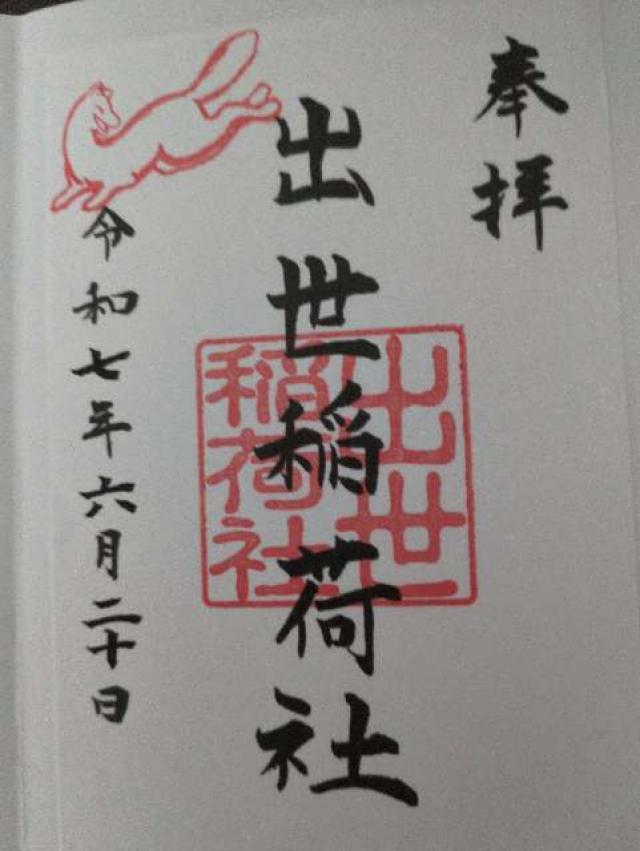 奉拝
出世稲荷社
出世
稲荷社
令和七年六月二十日